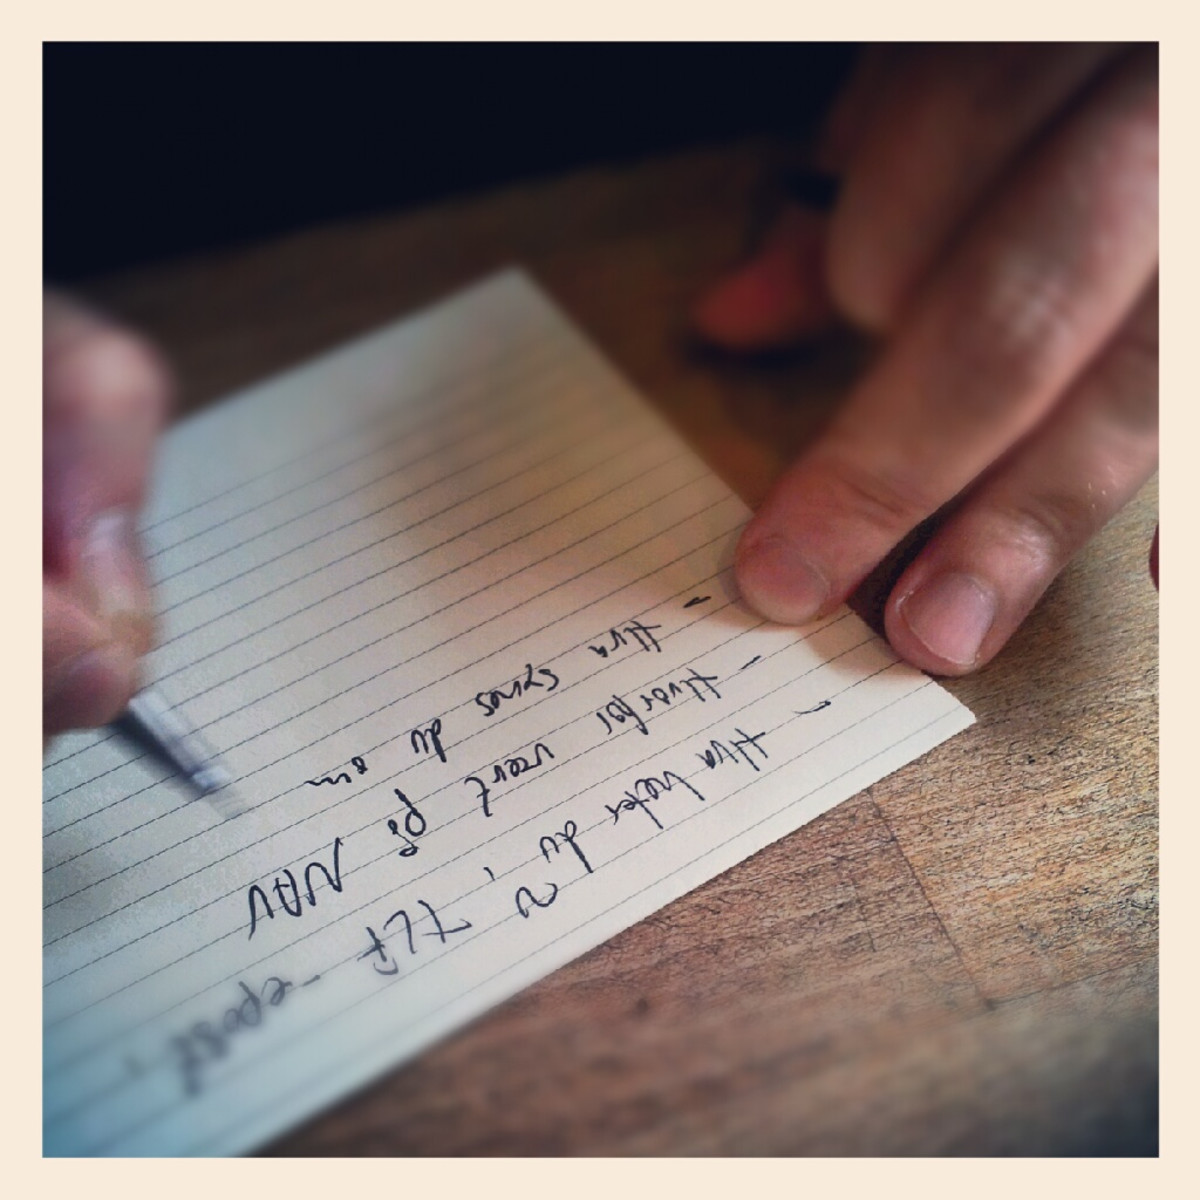 - Hva heter du, TLF - epost
- Hvorfor vært på NAV
- Hva synes du om